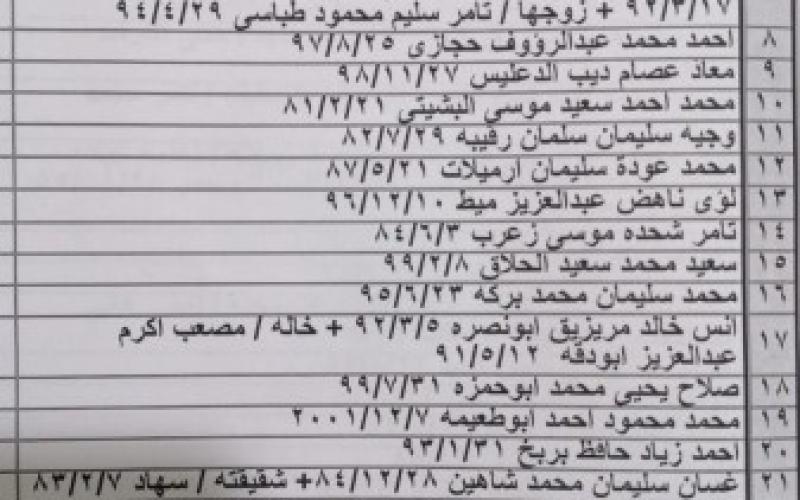 ٩٢/٣/١٧ + زوجها / تامر سليم محمود طباسي ٩٤/٤/٢٩
٨ احمد محمد عبدالرؤوف حجازي ٩٧/٨/٢٥
٩ معاذ عصام ديب الدعليس ٩٨/١١/٢٧
١٠ محمد احمد سعيد موسي البشيتي ٨١/٢/٢١
١١ وجيه سليمان سلمان رقيبه ٨٢/٧/٢٩
١٢ محمد عودة سليمان ارميلات ٨٧/٥/٢١
١٣ لؤي ناهض عبدالعزيز ميط ٩٦/١٢/١٠
١٤ تامر شحده موسي زعرب ٨٤/٦/٣
١٥ سعيد محمد سعيد الحلاق ٩٩/٢/٨
١٦ محمد سليمان محمد بركه ٩٥/٦/٢٣
١٧ انس خالد مريزيق ابونصره ٩٢/٣/٥ + خاله / مصعب اكرم
عبدالعزيز ابودقه ٩١/٥/١٢
١٨ صلاح يحيي محمد ابوحمزه ٩٩/٧/٣١
١٩ محمد محمود احمد ابوطعيمه ٢٠٠١/١٢/٧
٢٠ احمد زياد حافظ بربخ ٩٣/١/٣١
٢١ غسان سليمان محمد شاهين ٨٤/١٢/٢٨+ شقيقته / سهاد ٨٣/٢/٧